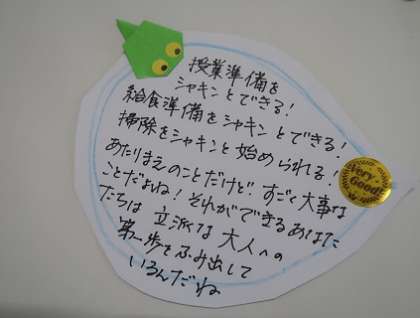 授業準備を
シャキンとできる!
給食準備をシャキンとできる!
掃除をシャキンと始められる!
あたりまえのことだけど、すごく大事な
ことだよね!それができるあなた
たちは立派な大人への
第一歩をふみ出して
いるんだね
Very
Good!